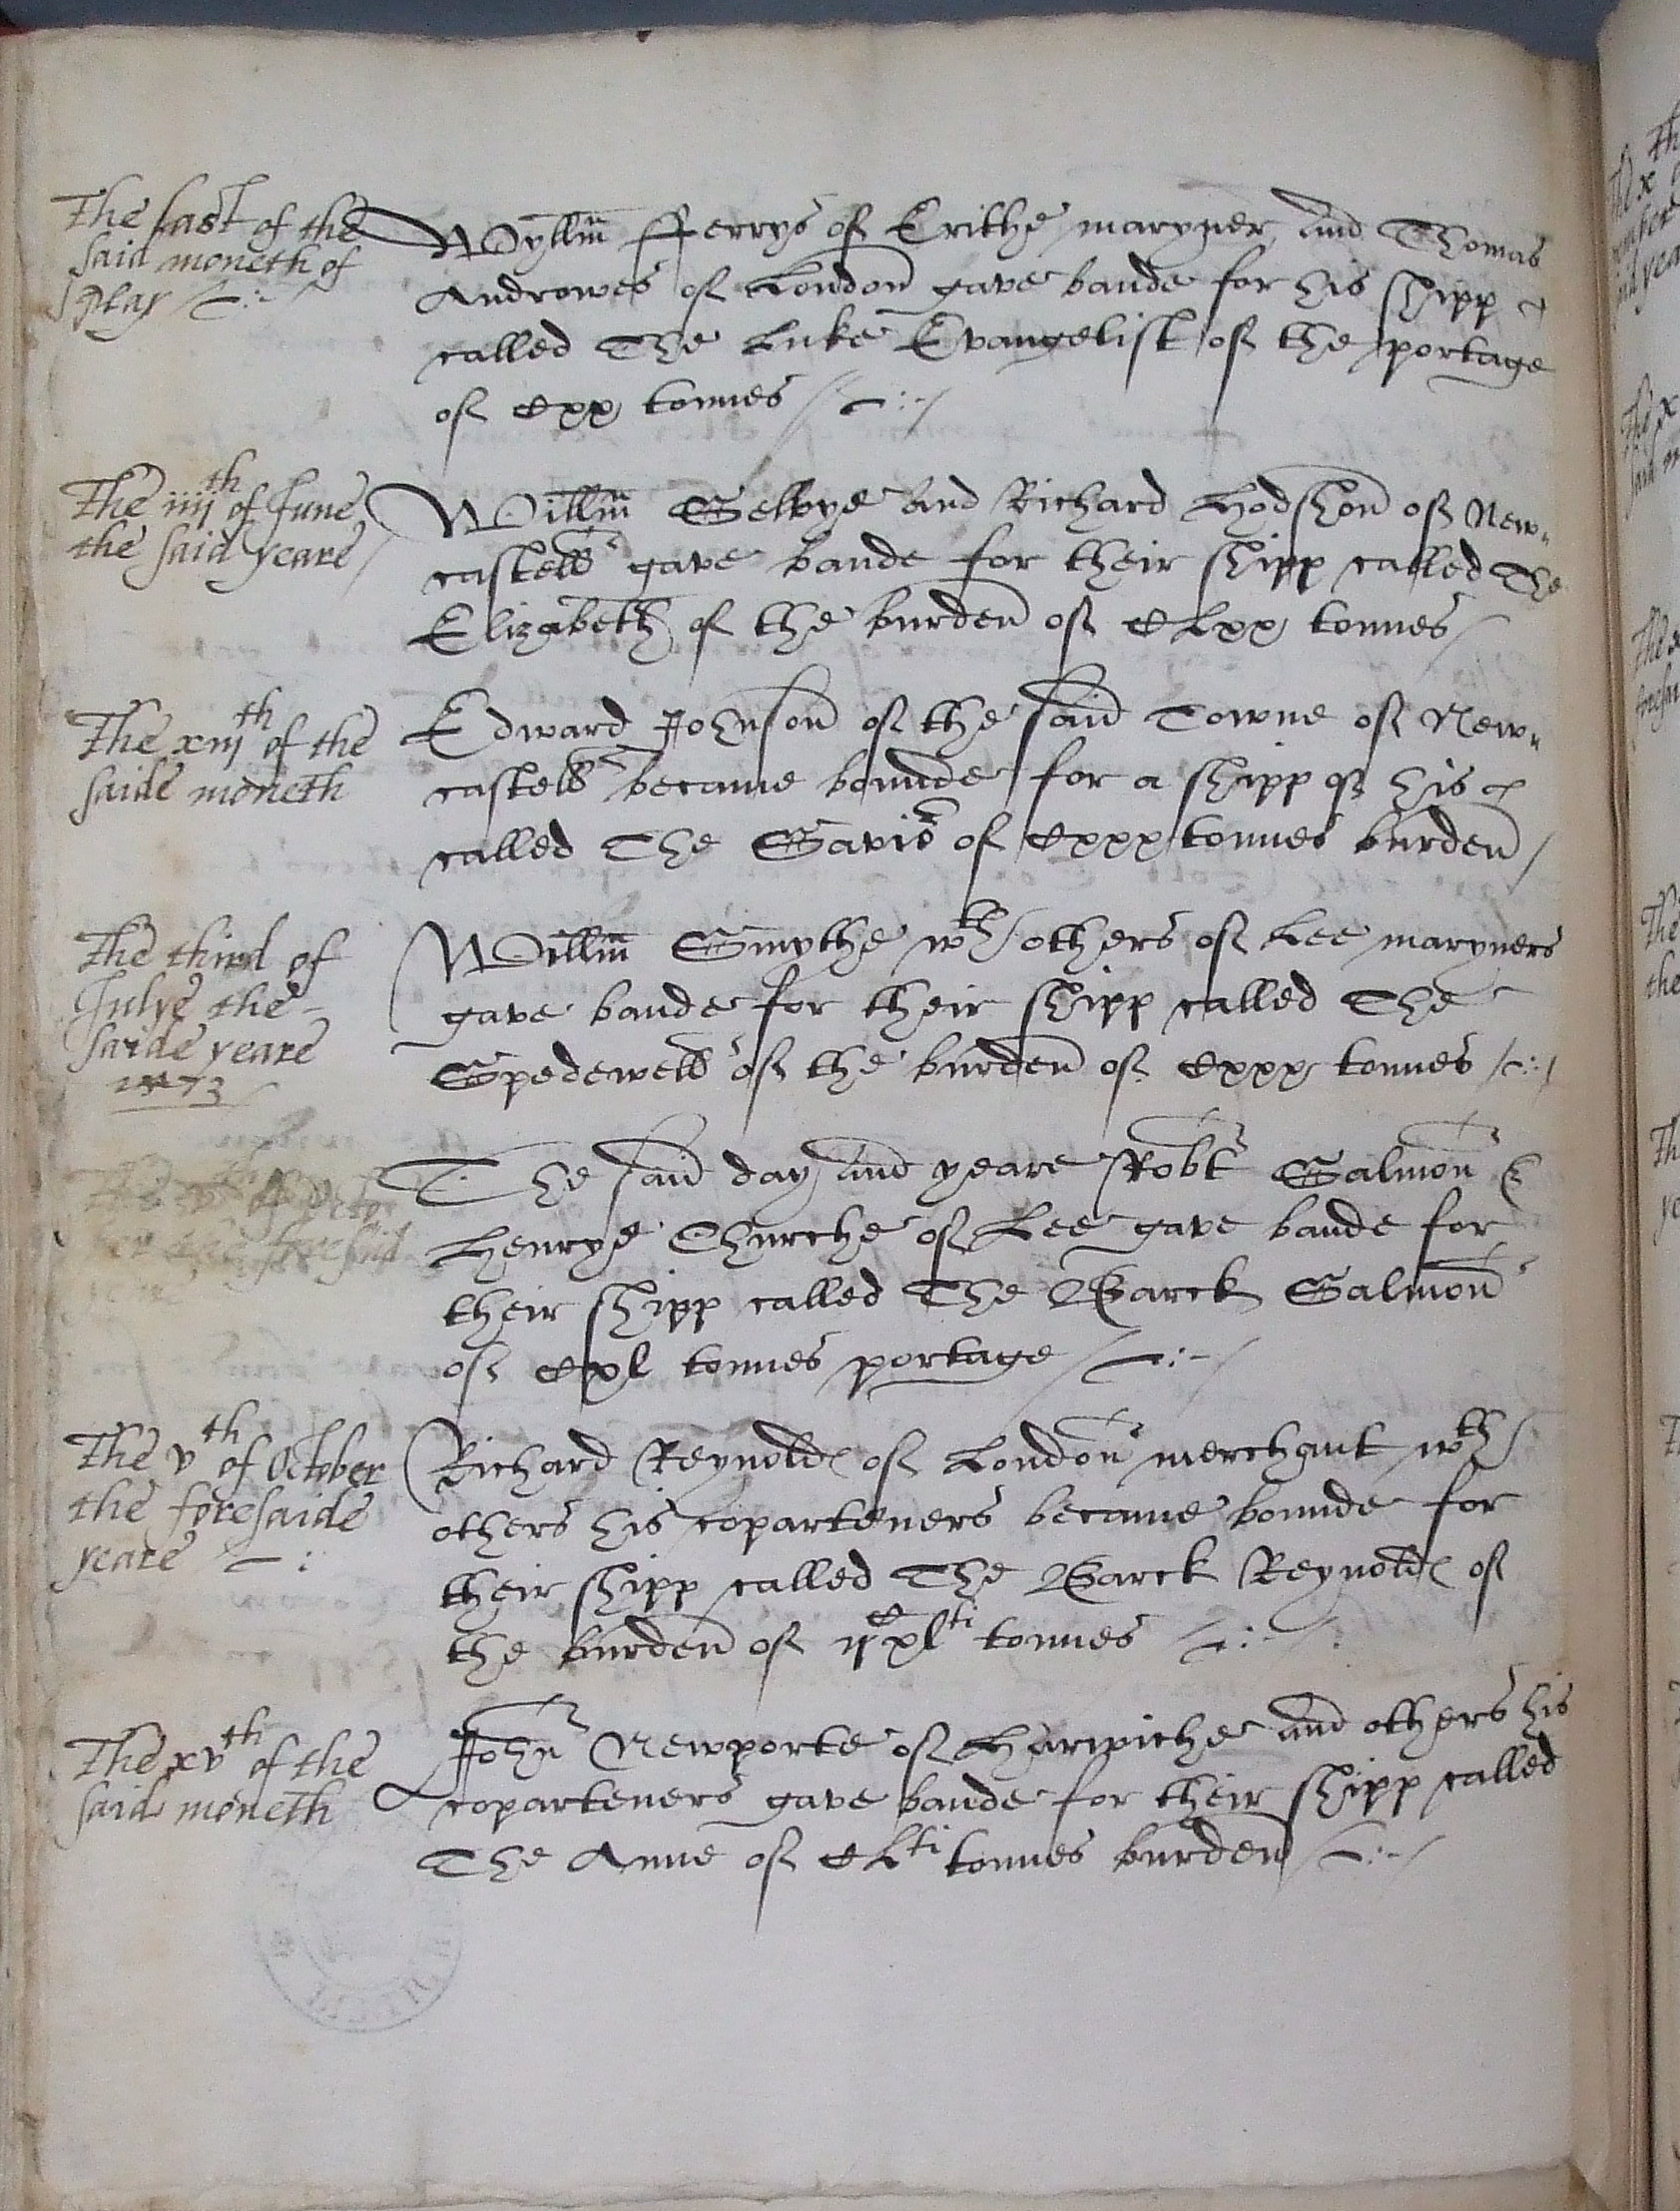 The last of the
said moneth of
May
Wyllm̄ Fferrys of Erithe maryner And Thomas
Androwes of London gave bande for his shipp
called The Luke Evangelist of the portage
of Cxx tonnes
The iiijth of June
the said yeare
Willm̄ Selbye And Richard Hodshon of New„
castell gave bande for their shipp called The
Elizabeth of the burden of CLxx tonnes
The xiijth of the
saide moneth
Edward Johnson of the said Towne of New„
castell became bounde for a shipp of his
called The Savio͛ of Cxxx tonnes burden
The third of
Julye the
saide yeare
1573
Willm̄ Smythe wth others of Lee maryners
gave bande for their shipp called The
Spedewell of the burden of Cxxx tonnes
The said day and yeare Robt Salmon &
Henrye Churche of Lee gave bande for
their shipp called The Barck Salmon
of Cxl tonnes portage
The vth of October
the foresaide
yeare
Richard Reynoldꝭ of London merchant wth
others his coparteners became bounde for
their shipp called The Barck Reynoldꝭ of
the burden of ijC xlti tonnes
The xvth of the
said moneth
John Newporte of Harwiche and others his
coparteners gave bande for their shipp called
The Anne of CLti tonnes burden